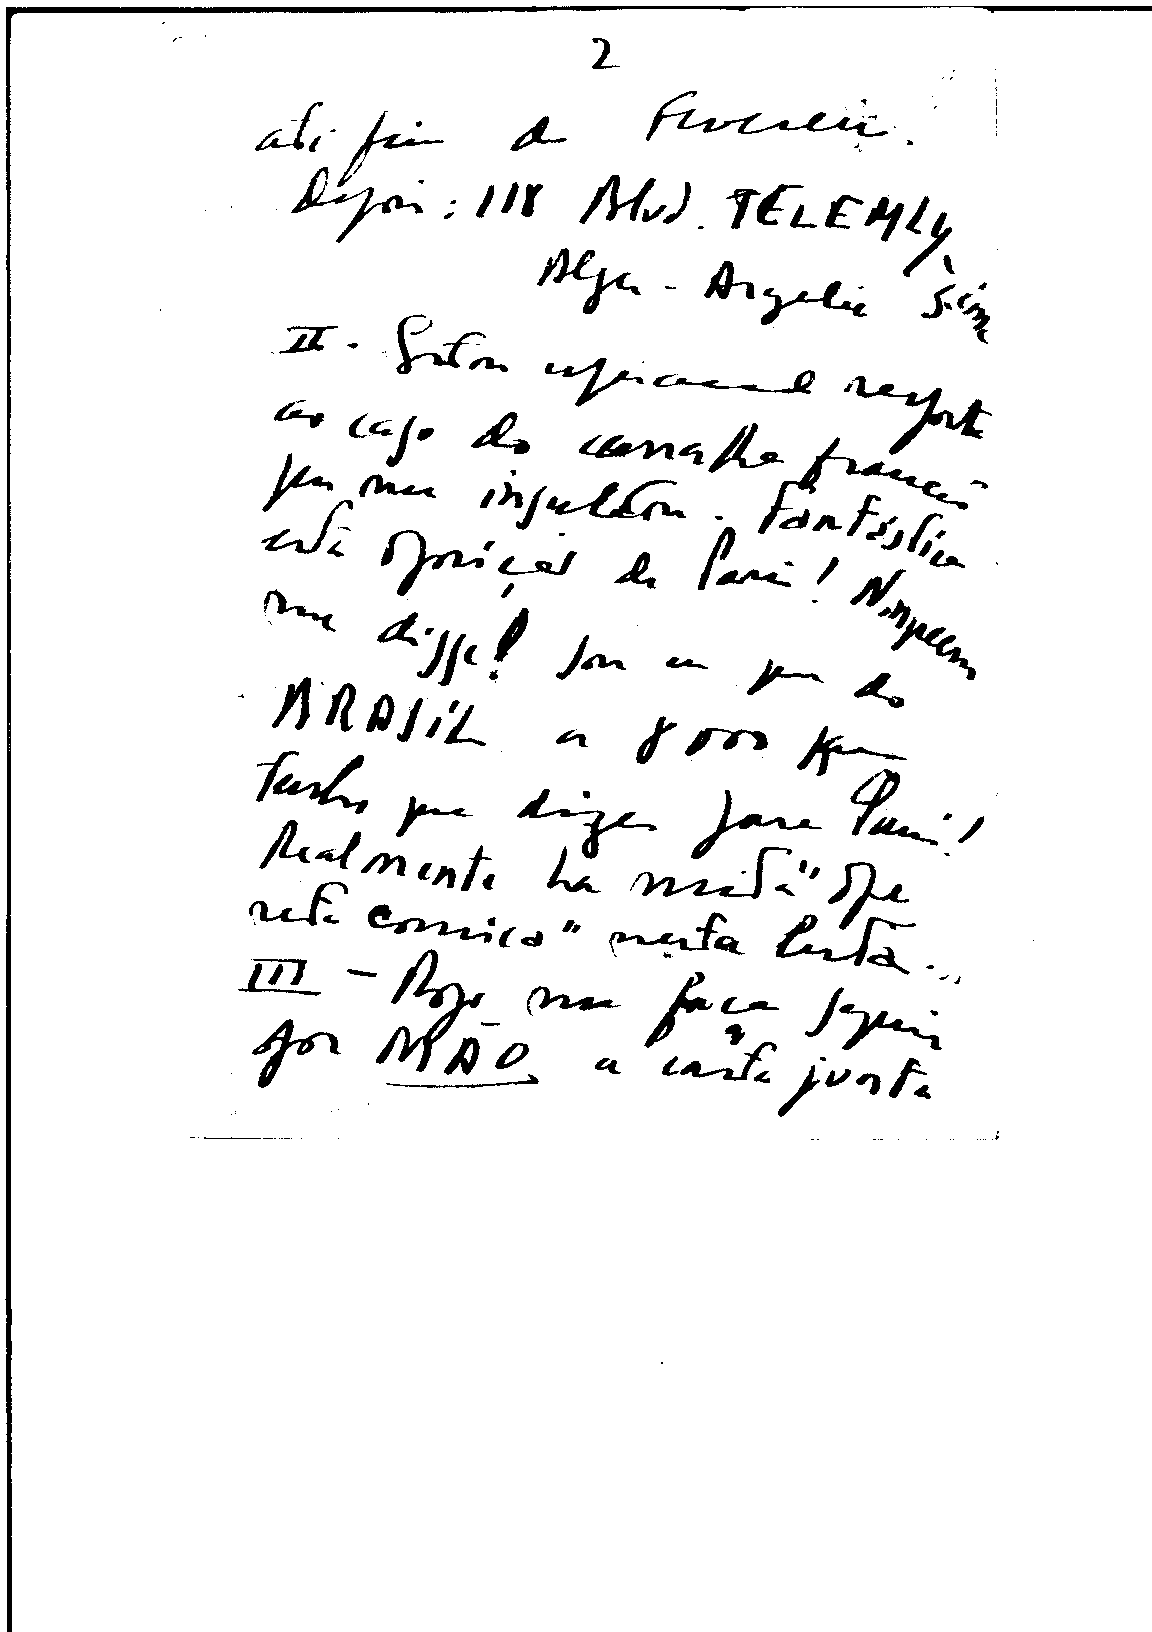 2
até fim de Fevereiro.
Depois: 118 Blvd. TELEMLY,
Alger - Argelia
II. Estou esperando resposta
ao caso do canalha francês
que me insultou. Fantástica
esta oposição de Paris! Ninguem
me disse! Sou eu que do
BRASIL a 8000 Km
tenho que dizer para Paris!
Realmente ha muita "ope
reta comica" nesta luta...
III - Rogo me faça seguir
por MÃO a carta junta